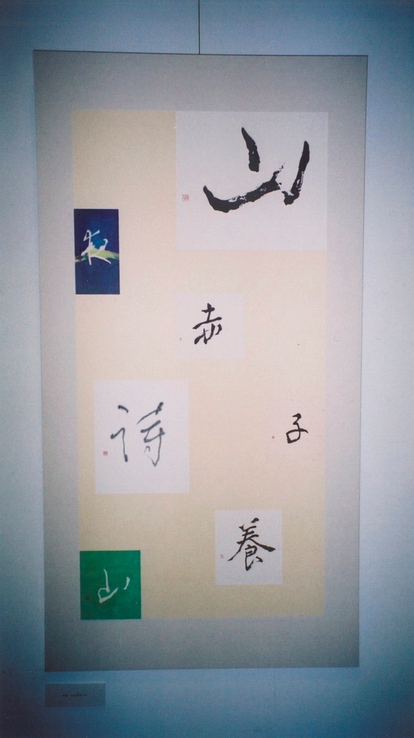 山
赤
子
詩
養
山